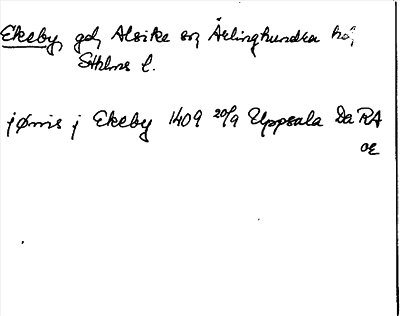 Ekeby, gd, Alsike sn, Ärlinghundra hd,
Sthlms l.
jønis j Ekeby 1409 20/9 Uppsala Da RA
OE